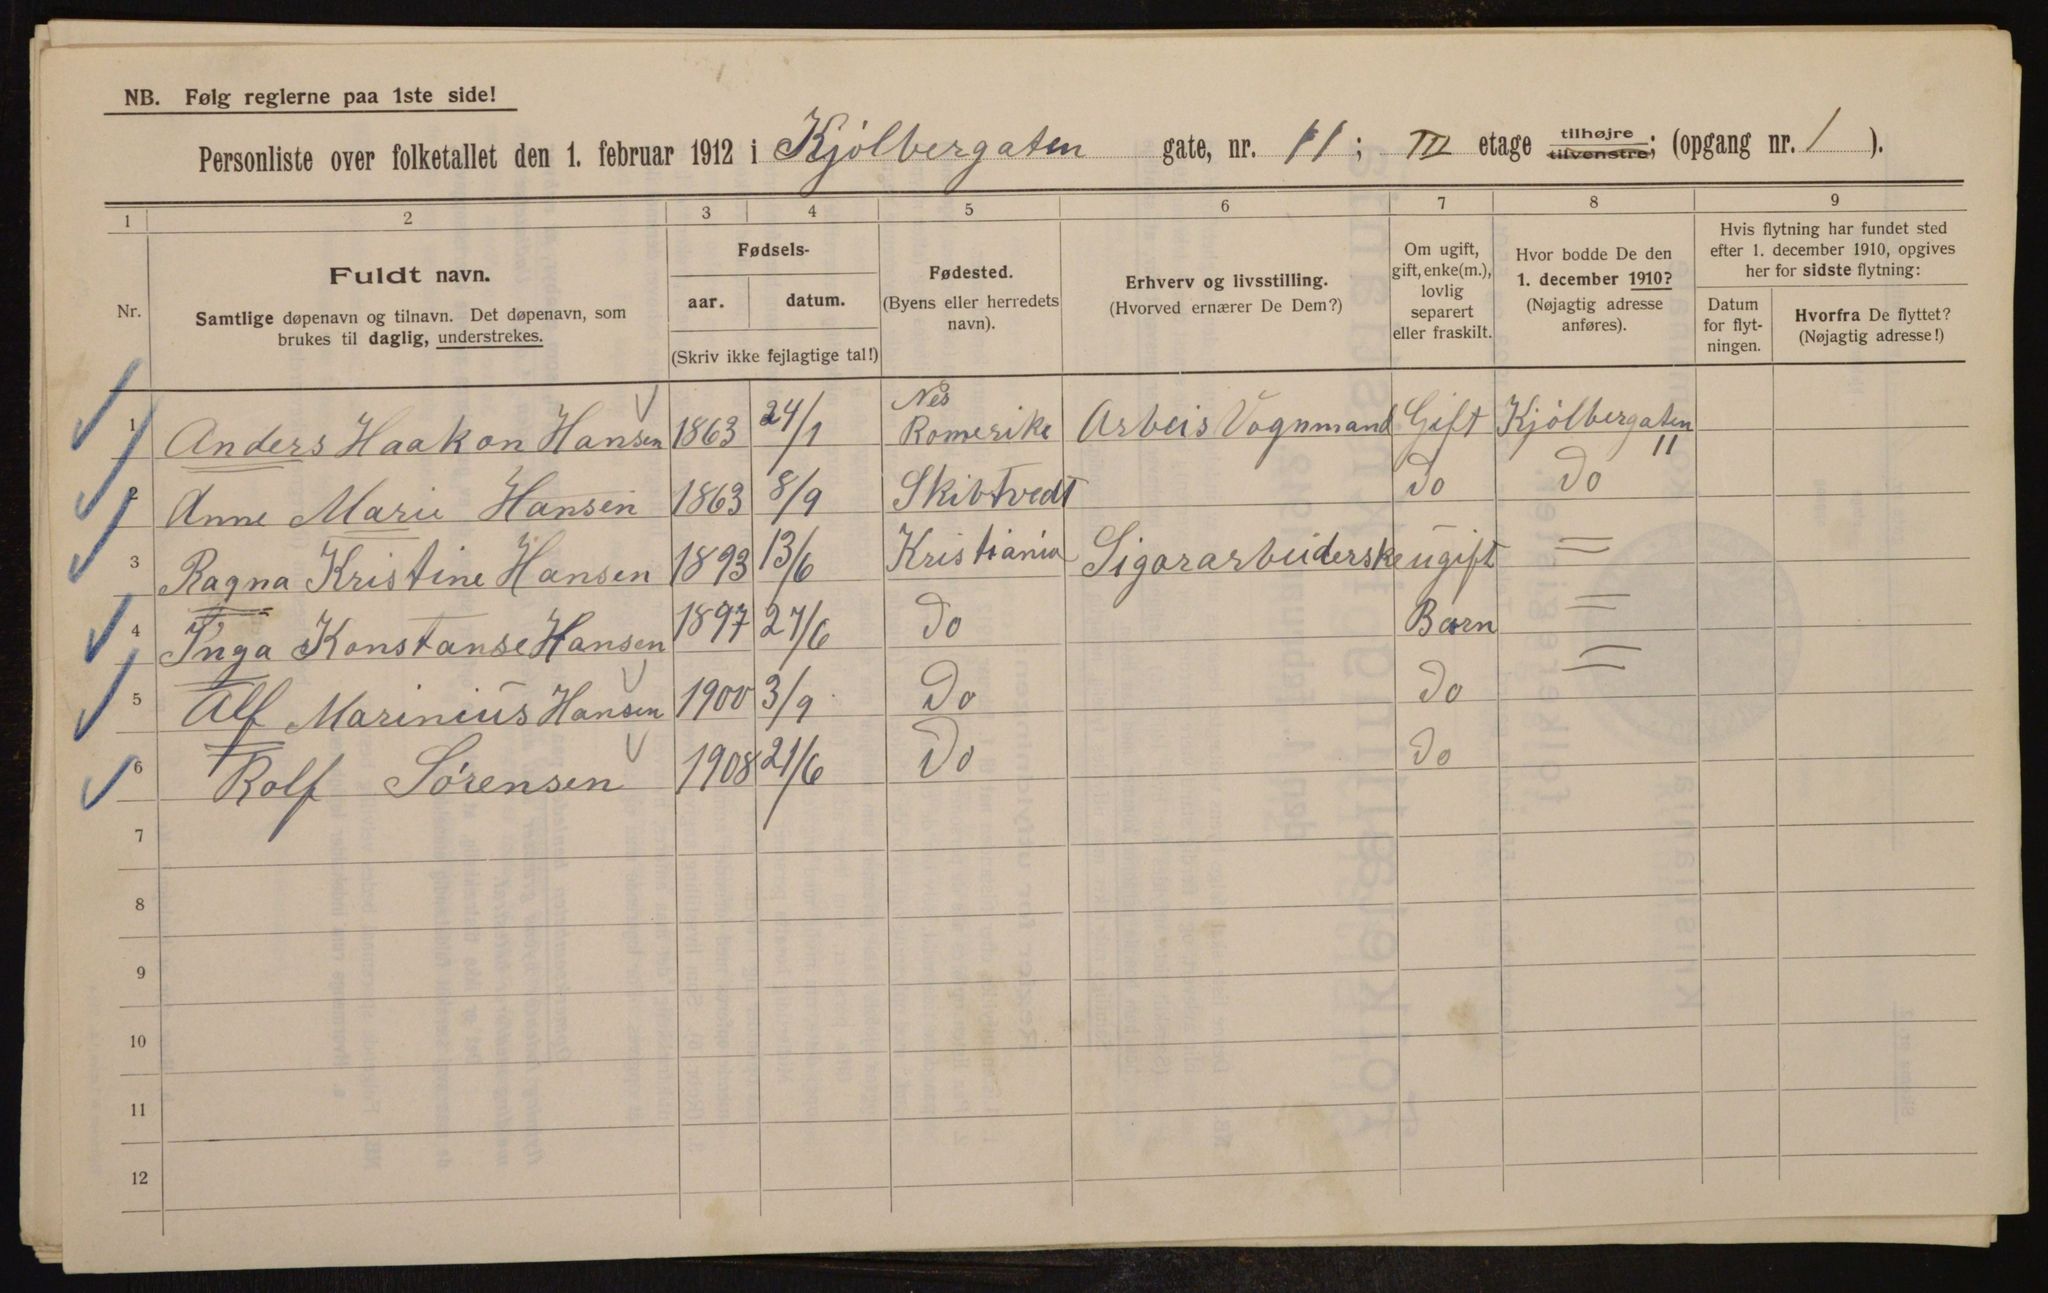 NB. Følg reglerne paa 1ste side!
Personliste over folketallet den 1. februar 1912 i Kjølbergaten gate, nr. 11; III etage tilhøjre tilvenstre; (opgang nr. 1 ).
1 2 3 4 5 6 7 8 9
Nr.
Fuldt navn.
Samtlige døpenavn og tilnavn. Det døpenavn, som
brukes til daglig, understrekes.
Fødsels-
aar. datum.
(Skriv ikke fejlagtige tal!)
Fødested.
(Byens eller herredets
navn).
Erhverv og livsstilling.
(Hvorved ernærer De Dem?)
Om ugift,
gift, enke(m.),
lovlig
separert
eller fraskilt.
Hvor bodde De den
1. december 1910?
(Nøjagtig adresse
anføres).
Hvis flytning har fundet sted
efter 1. december 1910, opgives
her for sidste flytning:
Datum
for flyt-
ningen.
Hvorfra De flyttet?
(Nøjagtig adresse!)
1 Anders Haakon Hansen 1863 24/1 Nes Romerike Arbeis Vognmand Gift Kjølbergaten 11
2 Anne Marie Hansen 1863 8/9 Skibtvedt Do Do
3 Ragna Kristine Hansen 1893 13/6 Kristiania Sigararbeiderske ugift =
4 Inga Konstanse Hansen 1897 27/6 Do Barn =
5 Alf Marinius Hansen 1900 3/9 Do Do =
6 Rolf Sørensen 1908 21/6 Do Do
7
8
9
10
11
12